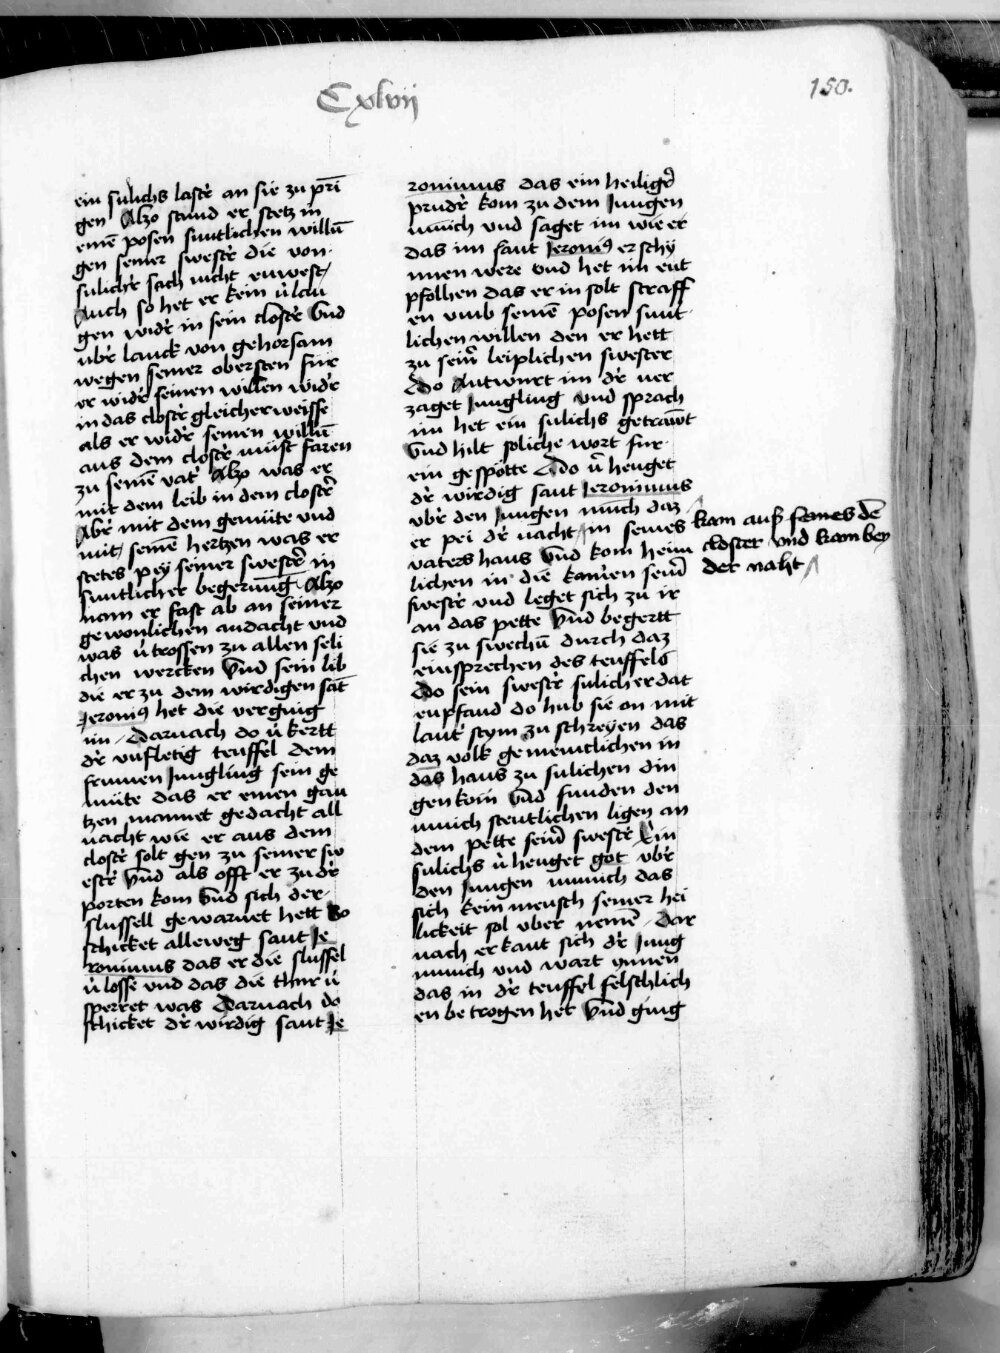 Cxlvij
150.
ein sulichs lastr̄ an sie zu prī
gen Alzo stund er stetz in
einē posen suntlichen willū
gen seiner swestr̄ die von
sulichr̄ sach nicht enwest/
Auch so het er kein v̄lau
gen widr̄ in sein clostr̄ Vnd
vbr̄ lanck von gehorsam
wegen seiner obersten für
er widr̄ seinen willen widr̄
in das clostr̄ gleicherweisse
als er widr̄ seinen willū
aus dem clostr̄ müst faren
zu seinē vatr̄ Alzo was er
mit dem leib in dem clostr̄
Abr̄ mit dem gemüte vnd
mit seinē hertzen was er
stetes pey seiner swestr̄ in
suntlicher begerung Alzo
nam er fast ab an seiner
gewonlichen andacht vnd
was v̄trossen zu allen seli
chen wercken Vnd sein lib
die er zu dem wirdigen sāt
Jeronig het die verging
im Darnach do v̄kertt
dr̄ vnfletig teuffel dem
frumen Jungling sein ge
müte das er einen gan
tzen mannet gedacht all
nacht wie er aus dem
clostr̄ solt gen zu seiner sw
estr̄ Vnd als offt er zu dr̄
porten kom Vnd sich der
slussell gewarnet hett So
schicket alleweg sant Je
ronimus das er die slussel
v̄losse vnd das die thur v̄
sperret was Darnach do
schicket dr̄ wirdig sant Je
ronimus das ein heiligr̄
prudr̄ kom zu dem Jungen
munich vnd saget im wie er
das im sant Jeronig erschy
nnen were Vnd het im ent
pfolhen das er in solt straff
en vmb seinē posen sunt
lichen willen den er hett
zu seinr̄ leiplichen swester
Do Antwurt im dr̄ ver
zaget Jungling vnd sprach
im het ein sulichs getraūt
Vnd hilt soliche wort fur
ein gespötte Do v̄henget
dr̄ wirdig sant Jeronimus
vbr̄ den Jungen munch daz
er pei dr̄ nacht in seines
vaters haus Vnd kom heim
lichen in die kamen seinr̄
swestr̄ vnd leget sich zu ir
an das pette Vnd begertt
sie zu swechū durch daz
einsprechen des teuffels
Do sein swestr̄ sulicher dat
enpfand do hub sie on mit
laut̄ stym zu schreyen das
daz volk gemeintlichen in
das haus zu sulichen din
gen kom Vnd funden den
munich stentlichen ligen an
dem pette seinr̄ swestr̄ Ein
sulichs v̄henget got vbr̄
den Jungen munich das
sich kein mensch seiner hei
lickeit sol vber nemē Dar
nach erkant sich dr̄ Jung
munich vnd wart ynnen
das in dr̄ teuffel felschlich
en betrogen het Vnd ging
kam auß seines dē
closter vnd kam bey
der naht